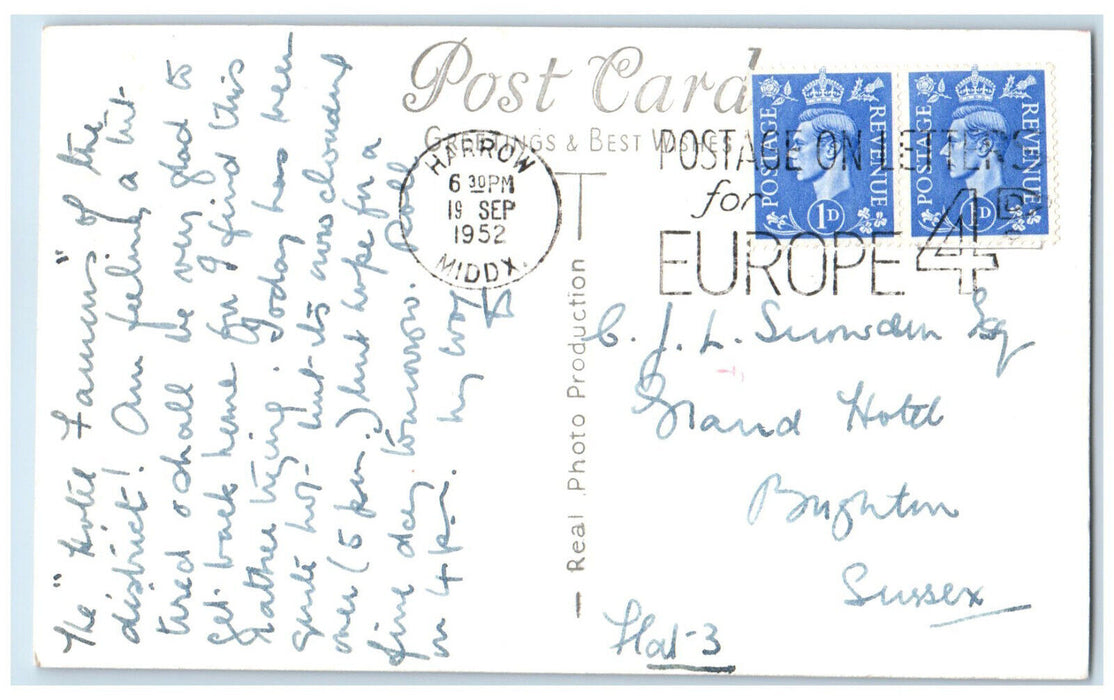 Post Card
GREETINGS & BEST WISHES
HARROW
6 30PM
19 SEP
1952
MIDDX.
POSTAGE ON LETTERS
for
EUROPE 4D
POSTAGE REVENUE
1D
POSTAGE REVENUE
1D
The "Hotel Famous" of the
district! Am feeling a bit
tired & shall be very glad to
get back home for I find this
rather trying. Today has been
quite hot but its now clouded
over (5 pm.) but hope for a
fine day tomorrow. Poll
in 4 pm. My love
— Real Photo Production —
C. J. L. Snowden Esq
Grand Hotel
Brighton
Sussex
Flat-3